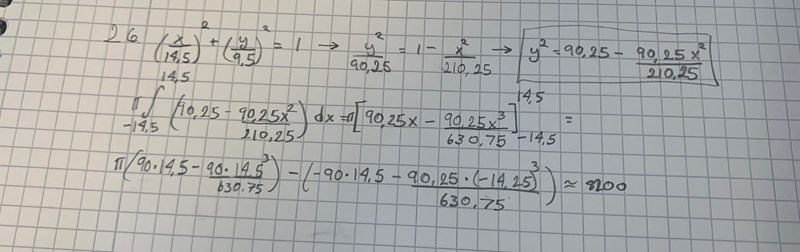 26 (x/14,5)² + (y/9,5)² = 1 → y²/90,25 = 1 - x²/210,25 → y² = 90,25 - 90,25x²/210,25
π∫_{-14,5}^{14,5} (90,25 - 90,25x²/210,25) dx = π[90,25x - 90,25x³/630,75]_{-14,5}^{14,5} =
π(90·14,5 - 90·14,5³/630.75) - (-90·14,5 - 90,25·(-14,25)³/630,75) ≈